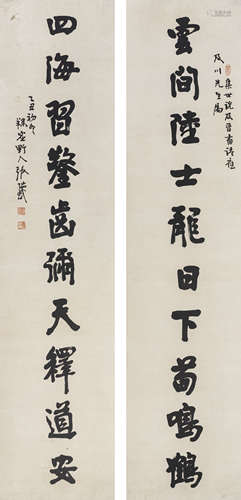 集世說及晉書語應
及川先生屬
雲間陸士龍日下荀鳴鶴
四海習鑿齒彌天釋道安
乙丑初冬
野人張